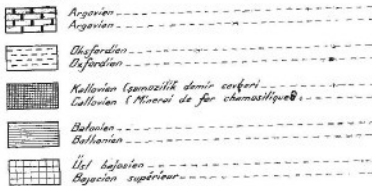 Argovien
Argovien
Oksfordien
Oxfordien
Kallovien (şamozitik demir cevheri
Callovien (Minerai de fer chamositique)
Batonien
Bathonien
Üst bajosien
Bajocien supérieur